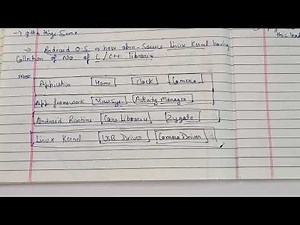 → Android O.S is here open-source Linux Kernel having
Collection of No. of C/C++ libraries
Application [Home] [Clock] [Camera]
App framework [View Sys] [Activity Manager]
Android Runtime [Core Libraries] [Zygote]
Linux Kernel [USB Driver] [Camera Driver]